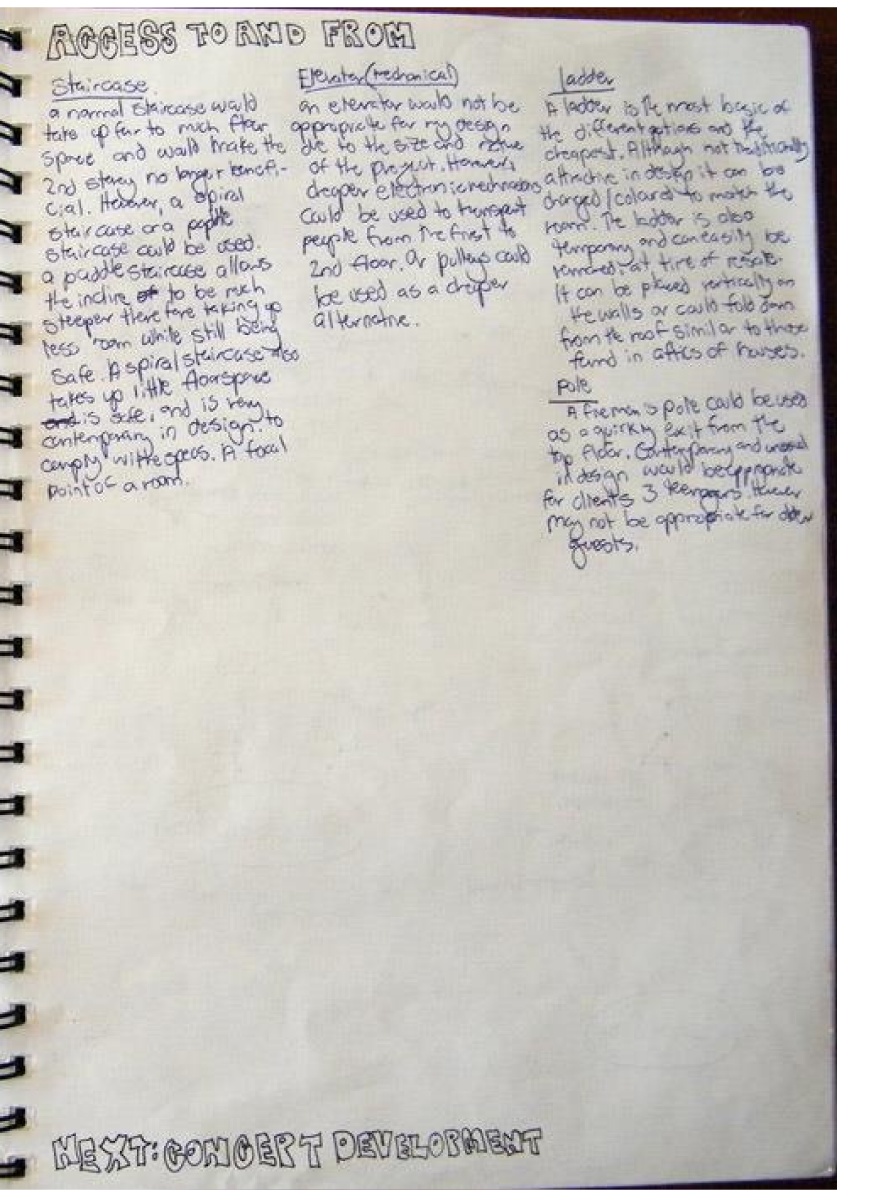 ACCESS TO AND FROM
Staircase.
a normal staircase would
take up far to much floor
space and would make the
2nd storey no longer benefi-
cial. However, a spiral
staircase or a
staircase could be used.
a paddle staircase allows
the incline of to be much
steeper therefore taking up
less room while still being
safe. A spiral staircase also
takes up little floorspace
and is safe, and is very
contemporary in design. to
comply with the specs. A focal
point of a room.
Elevator (mechanical)
an elevator would not be
appropriate for my design
due to the size and nature
of the project. However,
cheaper electronic mechanisms
could be used to transport
people from the first to
2nd floor. Or pulleys could
be used as a cheaper
alternative.
ladder
A ladder is the most basic of
the different options and the
cheapest. Although not traditionally
attractive in design it can be
changed/colored to match the
room. The ladder is also
temporary and can easily be
removed, at time of resale.
It can be placed vertically on
the walls or could fold down
from the roof similar to those
found in attics of houses.
Pole
A fireman's pole could be used
as a quirky exit from the
top floor. Contemporary and unusual
in design would be appropriate
for clients 3 teenagers. However
may not be appropriate for older
guests.
NEXT: CONCEPT DEVELOPMENT